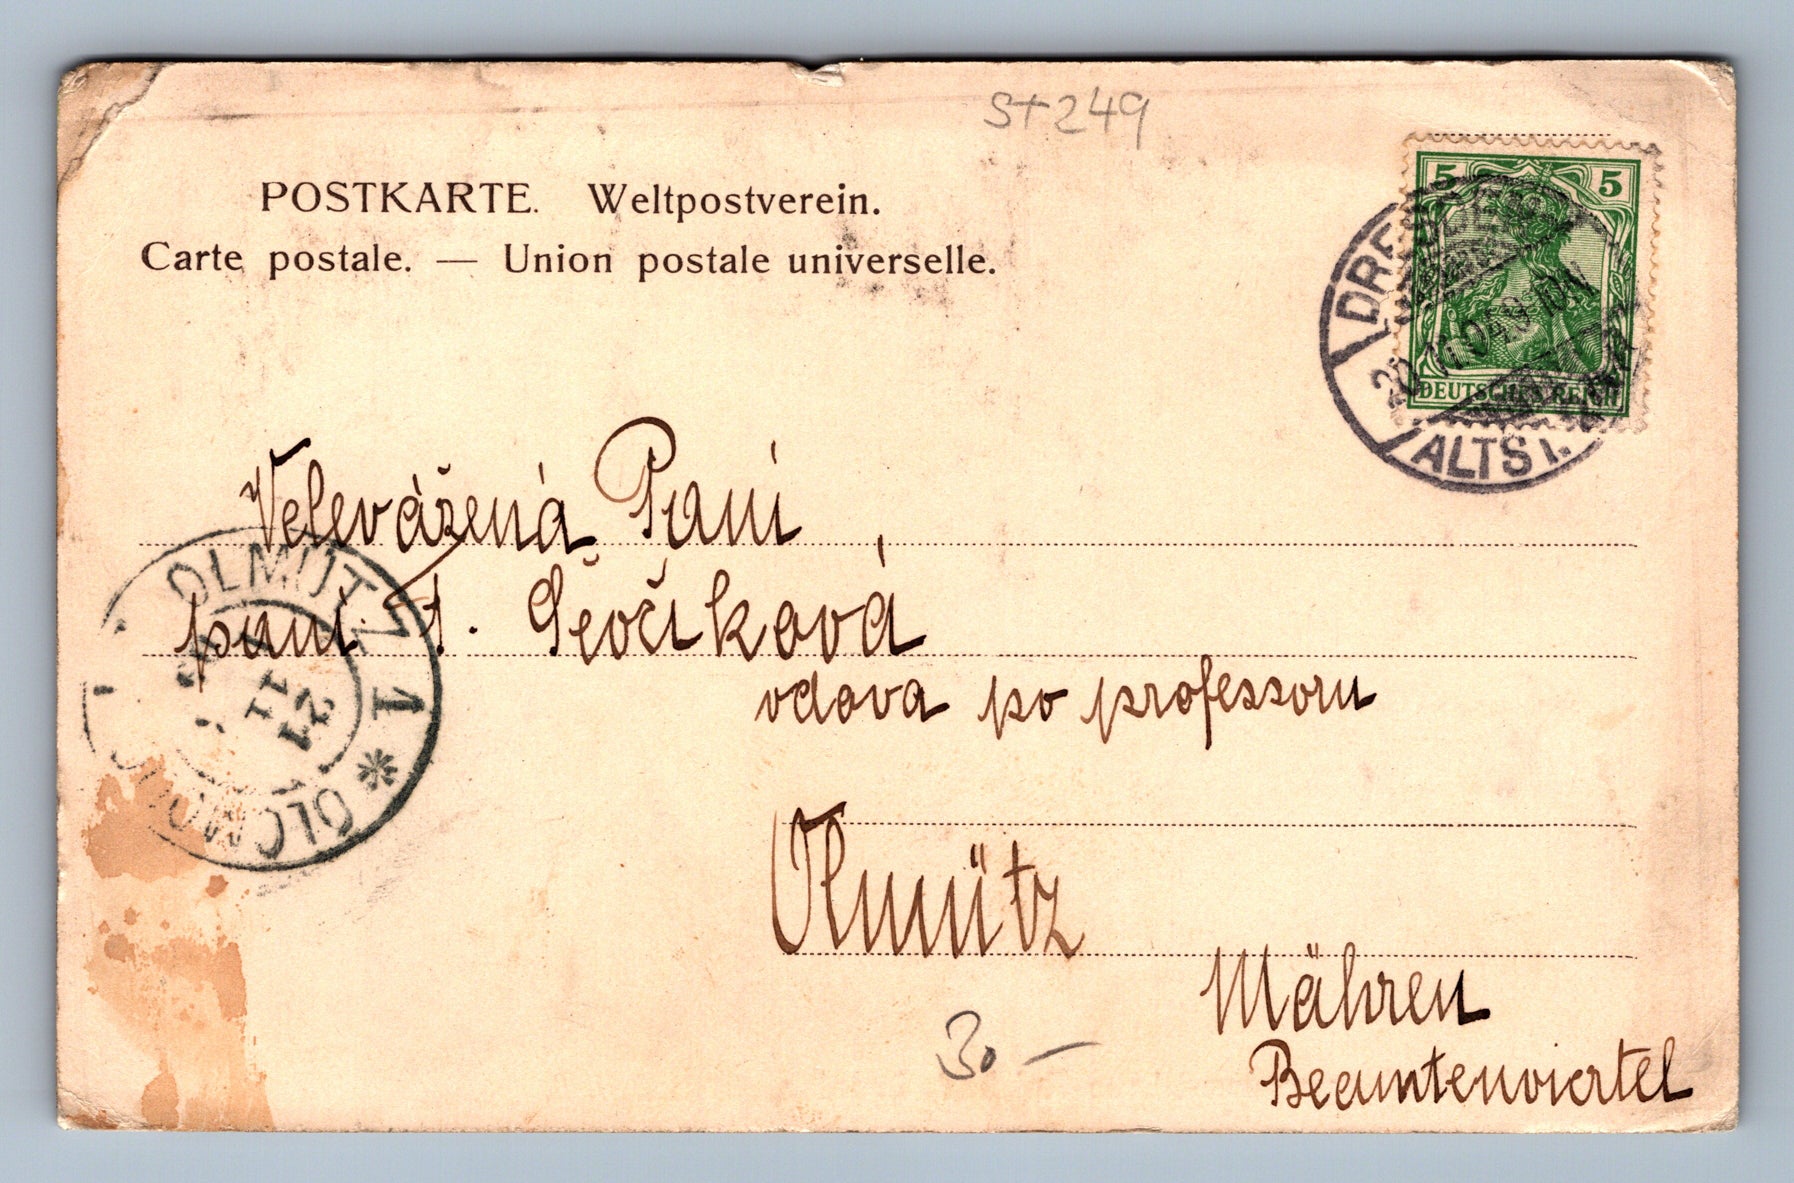 St 249
POSTKARTE. Weltpostverein.
Carte postale. — Union postale universelle.
5 5
DEUTSCHES REICH
DRESDEN
ALTST.
Velevážená Paní,
paní A. Ševčíková
vdova po professoru
OLMÜTZ 1 * OLOMOUC
21
11
Olmütz
Mähren
Beamtenviertel
30 —